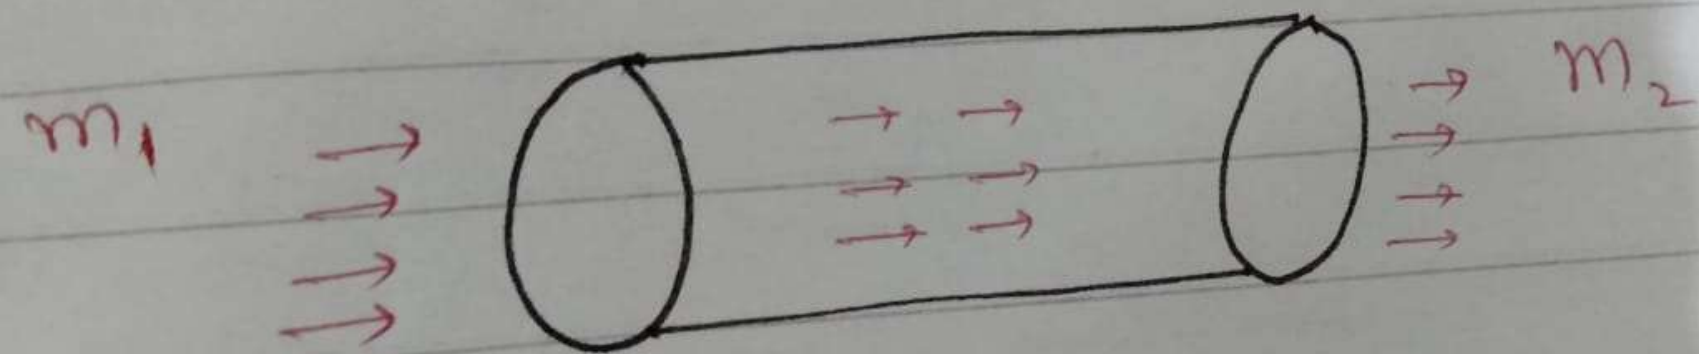 m₁
m₂